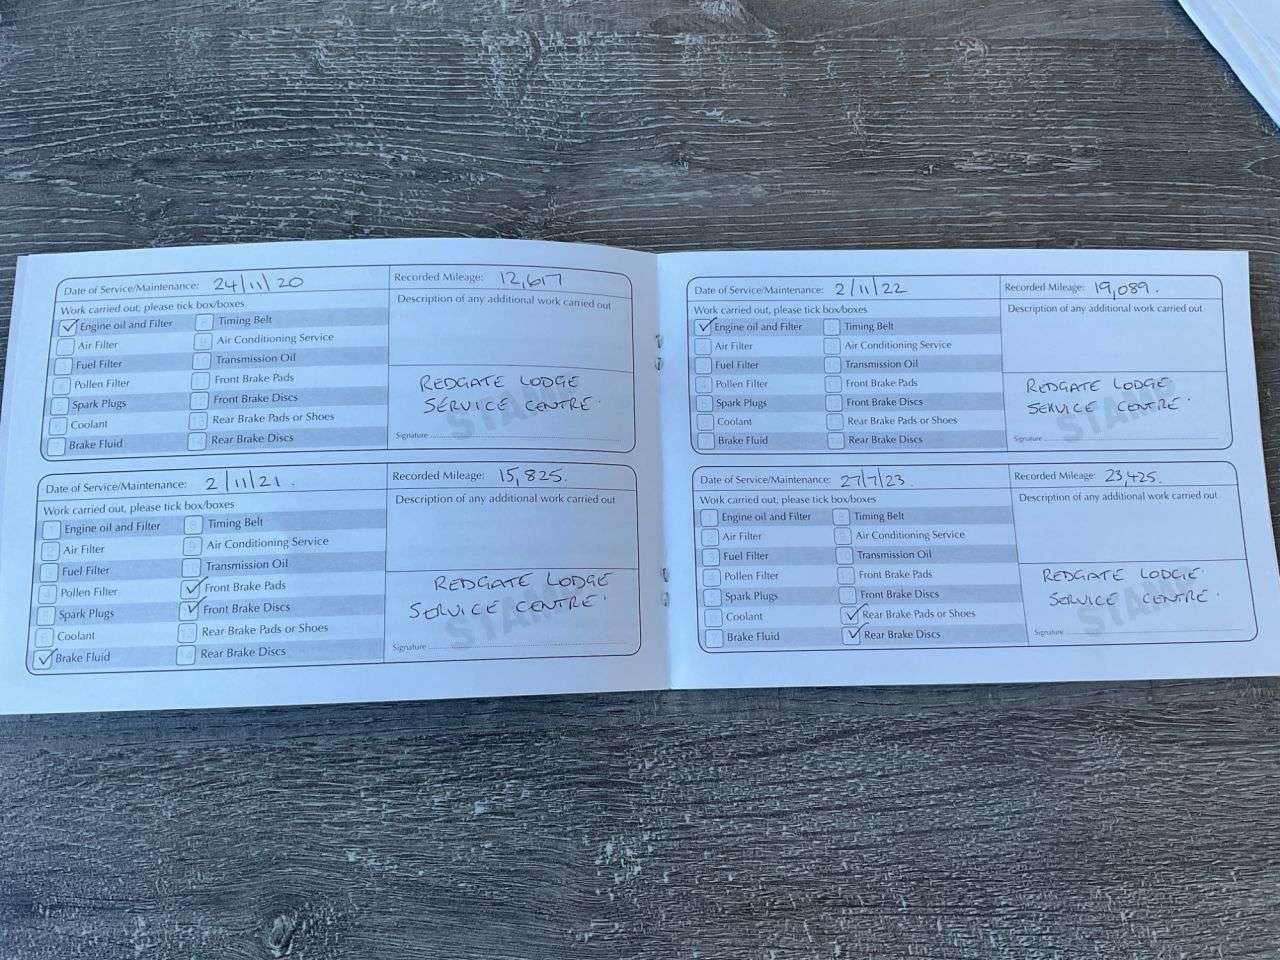 Date of Service/Maintenance: 24/11/20
Recorded Mileage: 12,617
Work carried out, please tick box/boxes
Description of any additional work carried out
Engine oil and Filter
Timing Belt
Air Filter
Air Conditioning Service
Fuel Filter
Transmission Oil
Pollen Filter
Front Brake Pads
Spark Plugs
Front Brake Discs
Coolant
Rear Brake Pads or Shoes
Brake Fluid
Rear Brake Discs
REDGATE LODGE
SERVICE CENTRE.
STAMP
Signature
Date of Service/Maintenance: 2/11/21.
Recorded Mileage: 15,825.
Work carried out, please tick box/boxes
Description of any additional work carried out
Engine oil and Filter
Timing Belt
Air Filter
Air Conditioning Service
Fuel Filter
Transmission Oil
Pollen Filter
Front Brake Pads
Spark Plugs
Front Brake Discs
Coolant
Rear Brake Pads or Shoes
Brake Fluid
Rear Brake Discs
REDGATE LODGE
SERVICE CENTRE.
STAMP
Signature
Date of Service/Maintenance: 2/11/22
Recorded Mileage: 19,089.
Work carried out, please tick box/boxes
Description of any additional work carried out
Engine oil and Filter
Timing Belt
Air Filter
Air Conditioning Service
Fuel Filter
Transmission Oil
Pollen Filter
Front Brake Pads
Spark Plugs
Front Brake Discs
Coolant
Rear Brake Pads or Shoes
Brake Fluid
Rear Brake Discs
REDGATE LODGE
SERVICE CENTRE.
STAMP
Signature
Date of Service/Maintenance: 27/7/23.
Recorded Mileage: 23,425.
Work carried out, please tick box/boxes
Description of any additional work carried out
Engine oil and Filter
Timing Belt
Air Filter
Air Conditioning Service
Fuel Filter
Transmission Oil
Pollen Filter
Front Brake Pads
Spark Plugs
Front Brake Discs
Coolant
Rear Brake Pads or Shoes
Brake Fluid
Rear Brake Discs
REDGATE LODGE.
SERVICE CENTRE.
STAMP
Signature